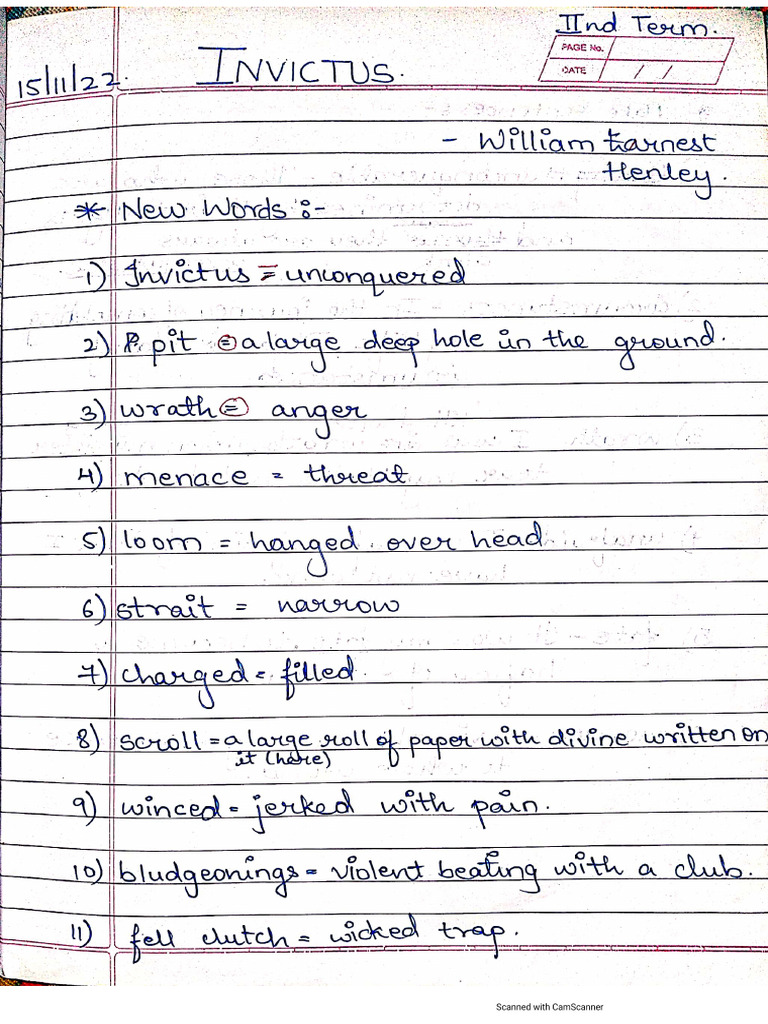 IInd Term.
PAGE No.
DATE / /
15/11/22.
INVICTUS.
- William Earnest
Henley.
* New Words :-
1) Invictus = unconquered
2) pit = a large deep hole in the ground.
3) wrath = anger
4) menace = threat
5) loom = hanged over head
6) strait = narrow
7) charged = filled.
8) scroll = a large roll of paper with divine written on
it (here)
9) winced = jerked with pain.
10) bludgeonings = violent beating with a club.
11) fell clutch = wicked trap.
Scanned with CamScanner